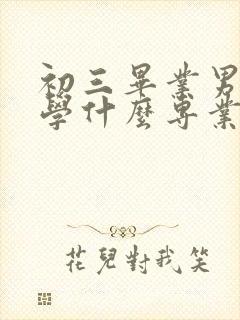 初三畢業男
學什麼專業
花兒對我笑